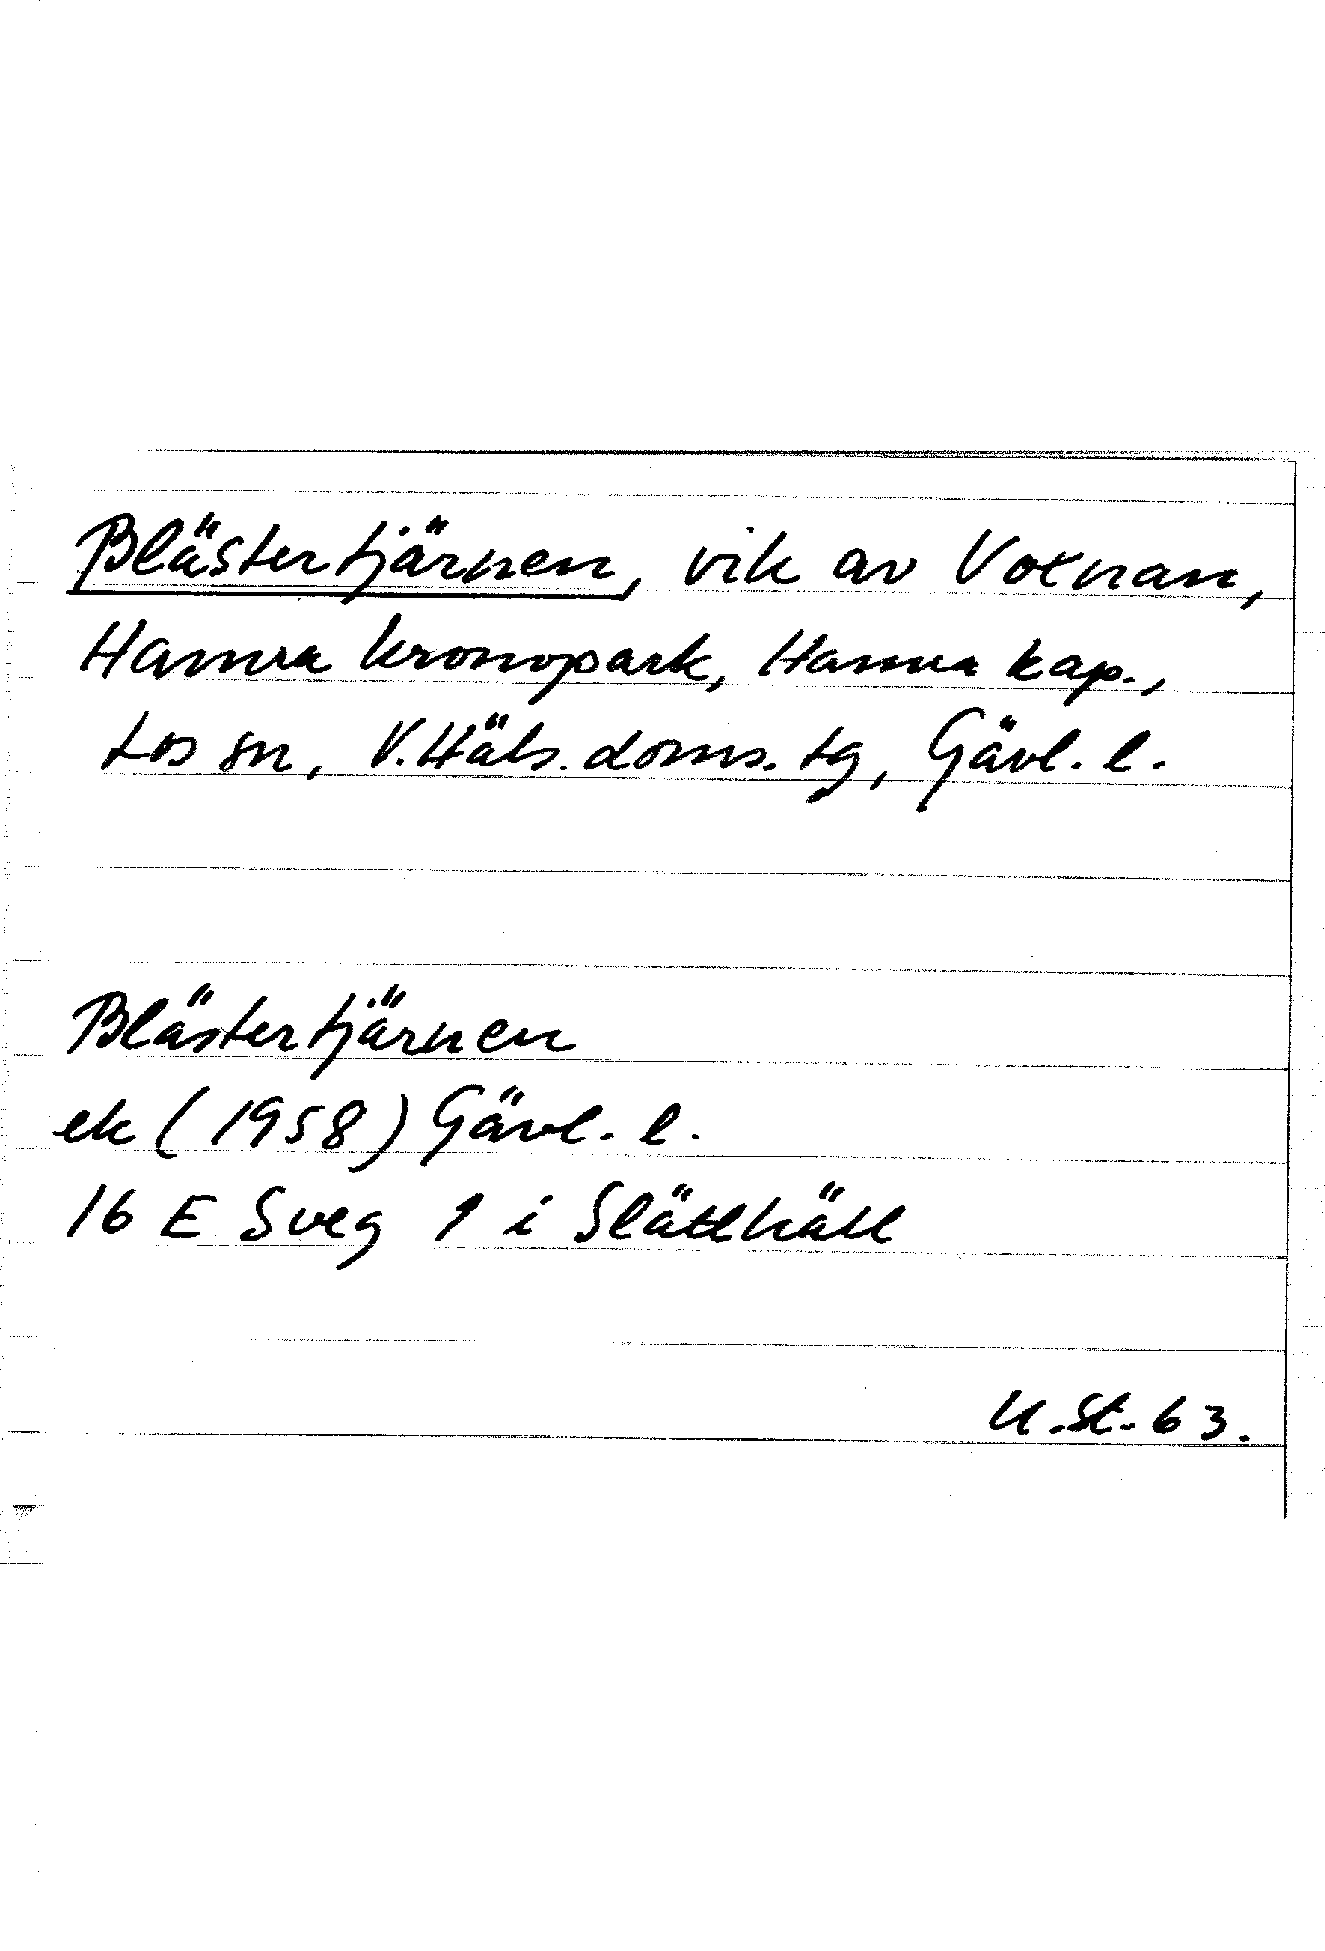 Blästertjärnen, vik av Voxnan,
Hamra kronopark, Hamra kap.,
Los sn, V. Häls. doms. tg, Gävl. l.
Blästertjärnen
ek (1958) Gävl. l.
16 E Sveg 1 i
U. St. 63.